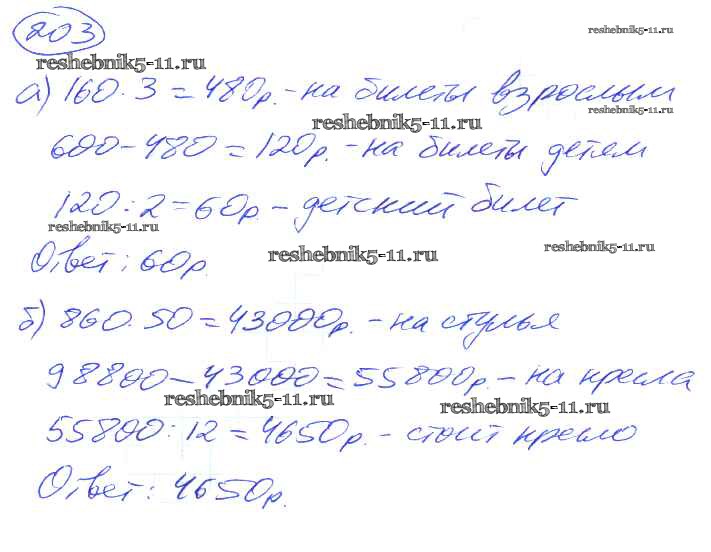 203
reshebnik5-11.ru
reshebnik5-11.ru
а) 160·3=480р.-на билеты взрослым
reshebnik5-11.ru
reshebnik5-11.ru
600-480=120р.-на билеты детям
120:2=60р.-детский билет
reshebnik5-11.ru
reshebnik5-11.ru
reshebnik5-11.ru
Ответ: 60р.
б) 860·50=43000р.-на стулья
98800-43000=55800р.-на кресла
reshebnik5-11.ru
reshebnik5-11.ru
55800:12=4650р.-стоит кресло
Ответ: 4650р.